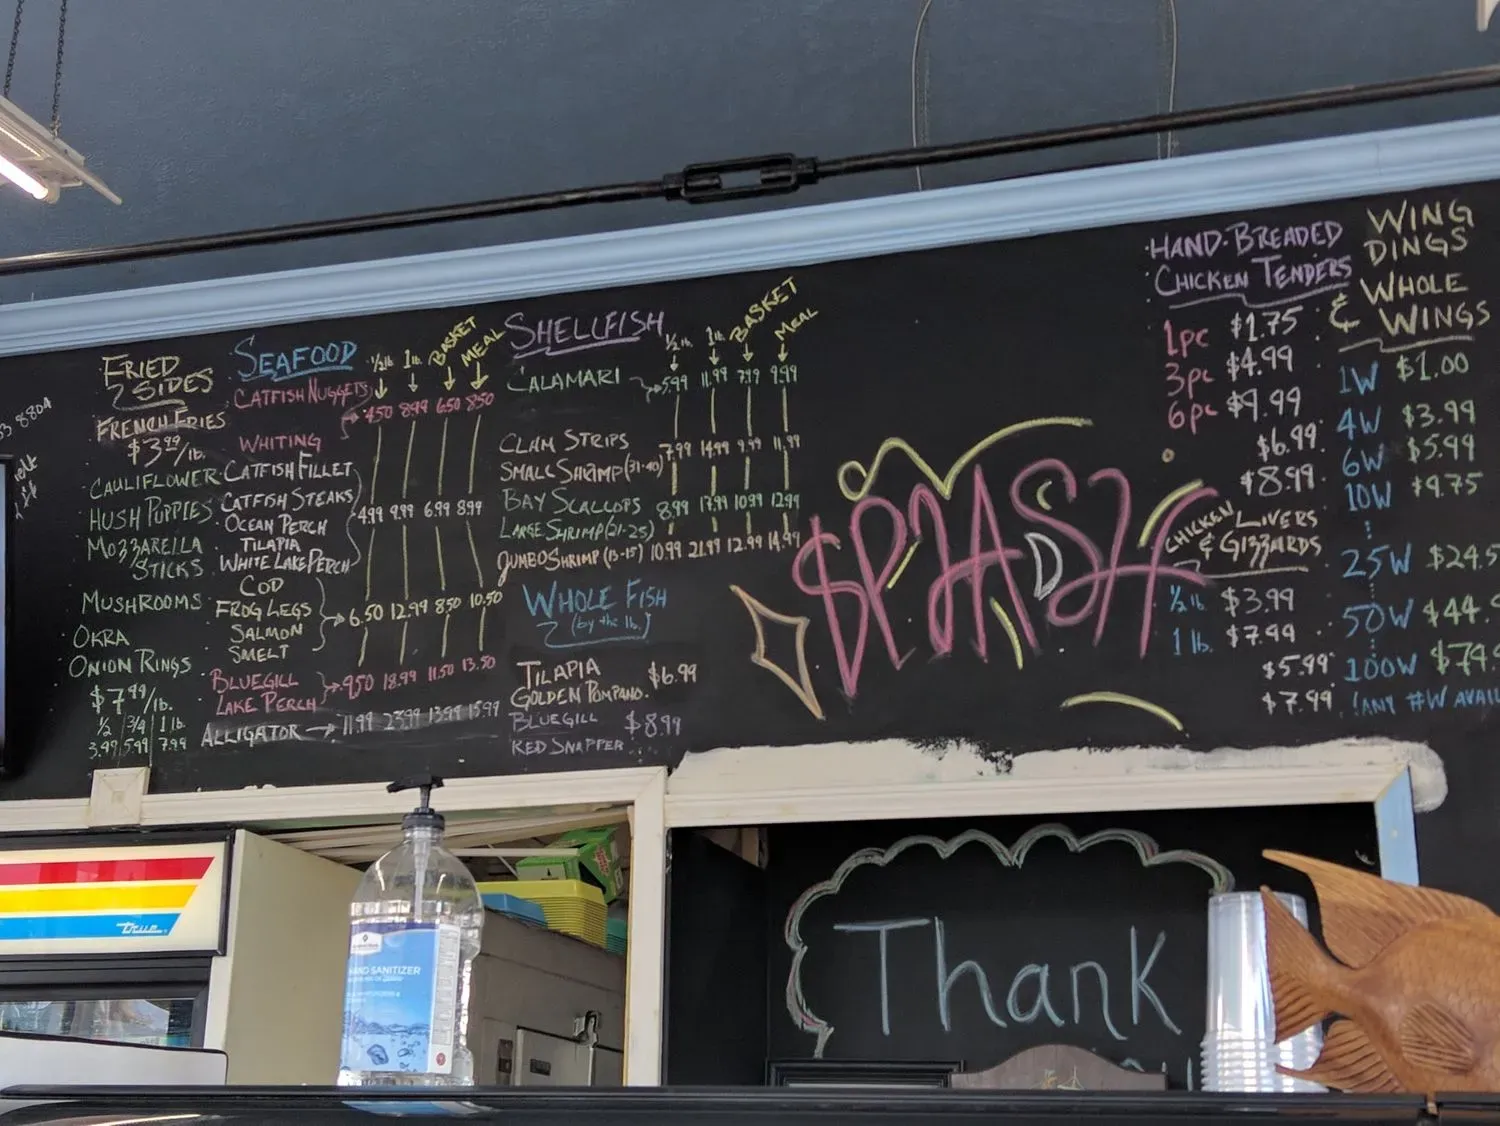 33 880A
FRIED
SIDES
FRENCH FRIES
$3.99/lb.
CAULIFLOWER
HUSH PUPPIES
MOZZARELLA
STICKS
MUSHROOMS
OKRA
ONION RINGS
$7.99/lb.
1/2 | 3/4 | 1 lb.
3.99 5.99 7.99
SEAFOOD
1/2 lb. 1 lb. BASKET MEAL
CATFISH NUGGETS
WHITING
4.50 8.99 6.50 8.50
CATFISH FILLET
CATFISH STEAKS
OCEAN PERCH
TILAPIA
WHITE LAKE PERCH
4.99 9.99 6.99 8.99
COD
FROG LEGS
SALMON
SMELT
6.50 12.99 8.50 10.50
BLUEGILL
LAKE PERCH
9.50 18.99 11.50 13.50
ALLIGATOR 11.99 23.99 13.99 15.99
SHELLFISH
1/2 lb. 1 lb. BASKET MEAL
CALAMARI 5.99 11.99 7.99 9.99
CLAM STRIPS
SMALL SHRIMP (31-40)
7.99 14.99 9.99 11.99
BAY SCALLOPS
LARGE SHRIMP (21-25)
8.99 17.99 10.99 12.99
JUMBO SHRIMP (13-15) 10.99 21.99 12.99 14.99
WHOLE FISH
(by the lb.)
TILAPIA
GOLDEN POMPANO
$6.99
BLUEGILL
RED SNAPPER
$8.99
SPLASH
HAND-BREADED
CHICKEN TENDERS
1pc $1.75
3pc $4.99
6pc $9.99
$6.99
$8.99
CHICKEN LIVERS
& GIZZARDS
1/2 lb $3.99
1 lb. $7.99
$5.99
$7.99
WING
DINGS
& WHOLE
WINGS
1W $1.00
4W $3.99
6W $5.99
10W $9.75
25W $24.5
50W $44.
100W $74.9
(ANY #W AVAIL
true
HAND SANITIZER
Thank